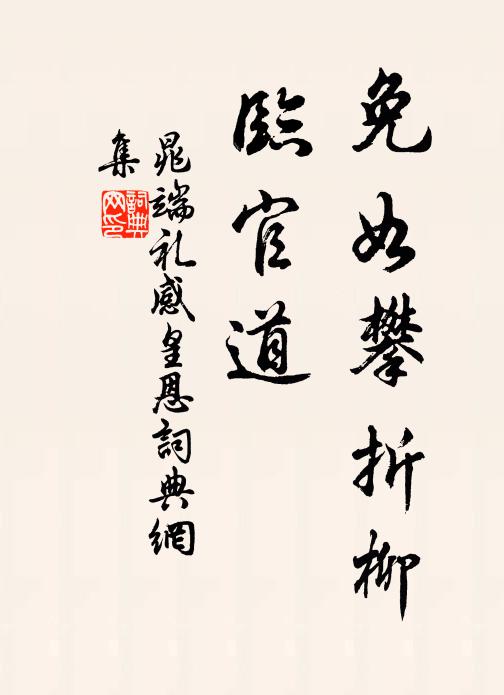 免如攀折柳
臨官道
晁端礼感皇恩詞典網
集
詞典
网印